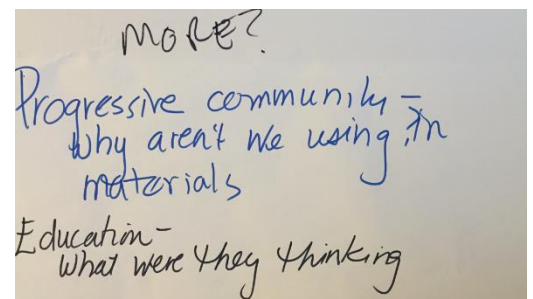 MORE?
Progressive community –
why aren't we using in
materials
Education –
What were they thinking